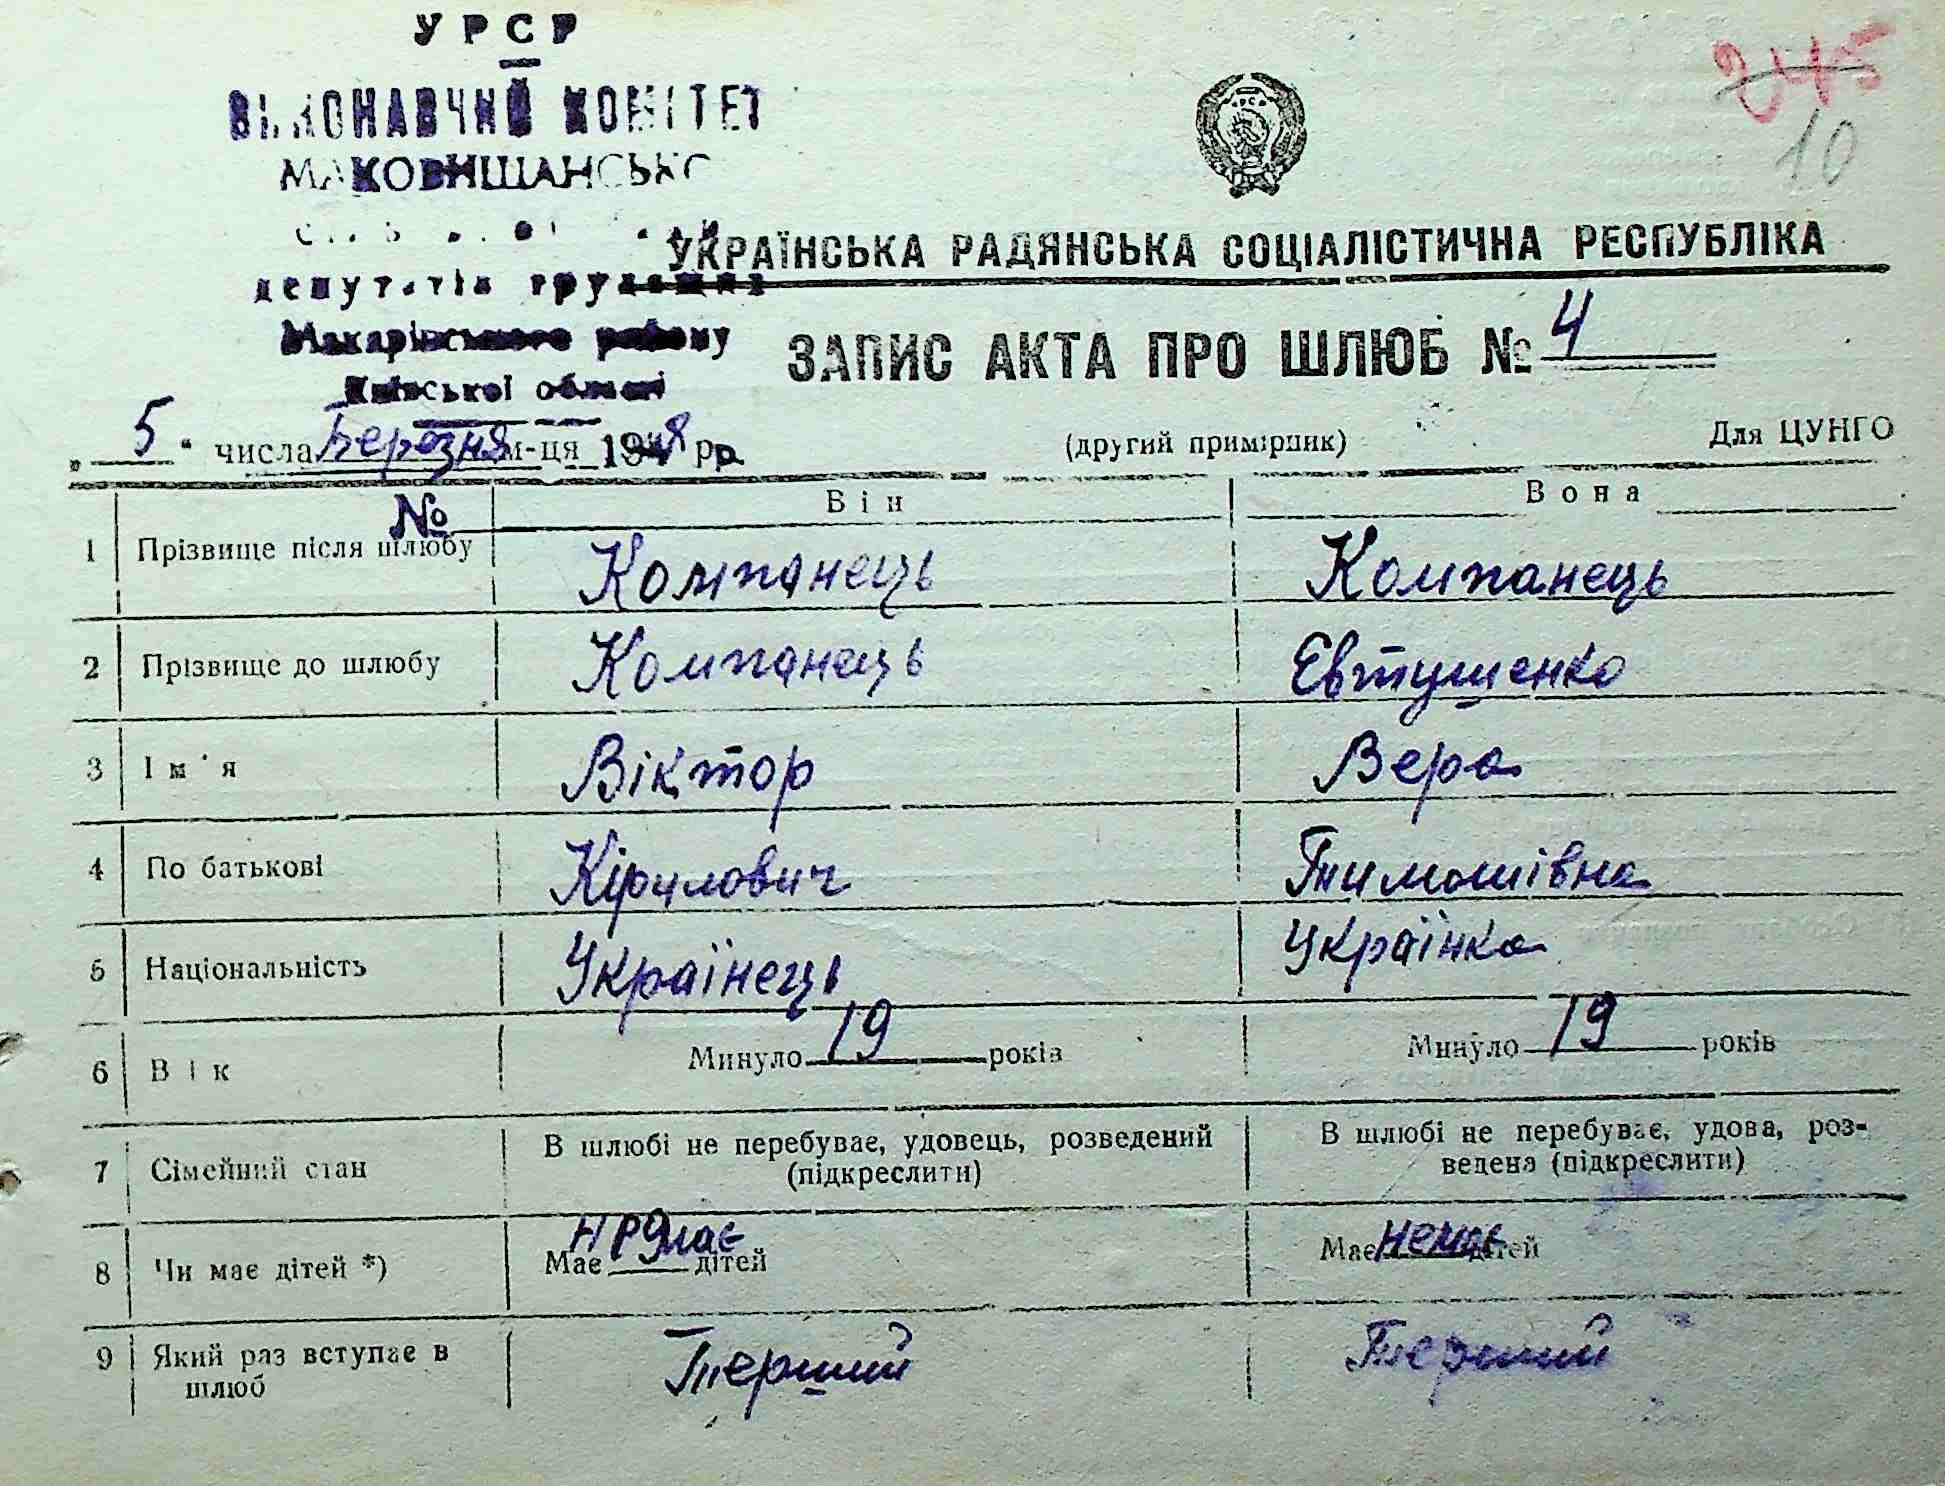 УРСР
ВИКОНАВЧИЙ КОМІТЕТ
МАКОВИЩАНСЬКО
депутатів трудящих
Макарівського району
Київської області
245
10
УКРАЇНСЬКА РАДЯНСЬКА СОЦІАЛІСТИЧНА РЕСПУБЛІКА
ЗАПИС АКТА ПРО ШЛЮБ № 4
„ 5 " числа Березня м-ця 1948 р. (другий примірник) Для ЦУНГО
№ Він Вона
1 Прізвище після шлюбу Компанець Компанець
2 Прізвище до шлюбу Компанець Евтушенко
3 Ім'я Віктор Вера
4 По батькові Кірилович Тимошівна
5 Національність Українець Українка
6 Вік Минуло 19 років Минуло 19 років
7 Сімейний стан В шлюбі не перебуває, удовець, розведений (підкреслити) В шлюбі не перебуває, удова, роз-
ведена (підкреслити)
8 Чи має дітей *) Має дітей Має немає дітей
9 Який раз вступає в шлюб Перший Перший